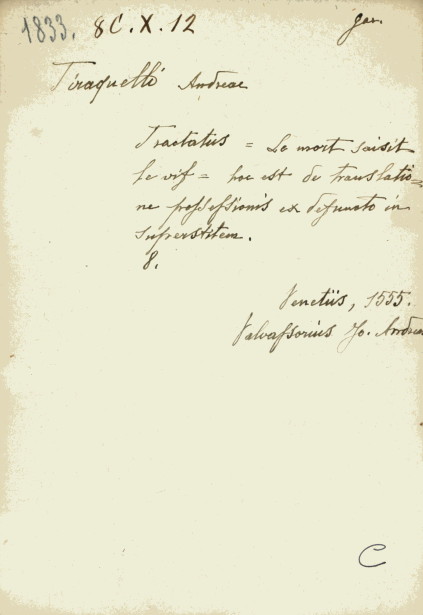 1833. 8C.X.12 gar.
Tiraquelli Andreae
Tractatus = Le mort saisit
le vif = hoc est de translatio=
ne possessionis ex defuncto in
superstitem.
8.
Venetiis, 1555.
Valvassorius Jo. Andrea
C